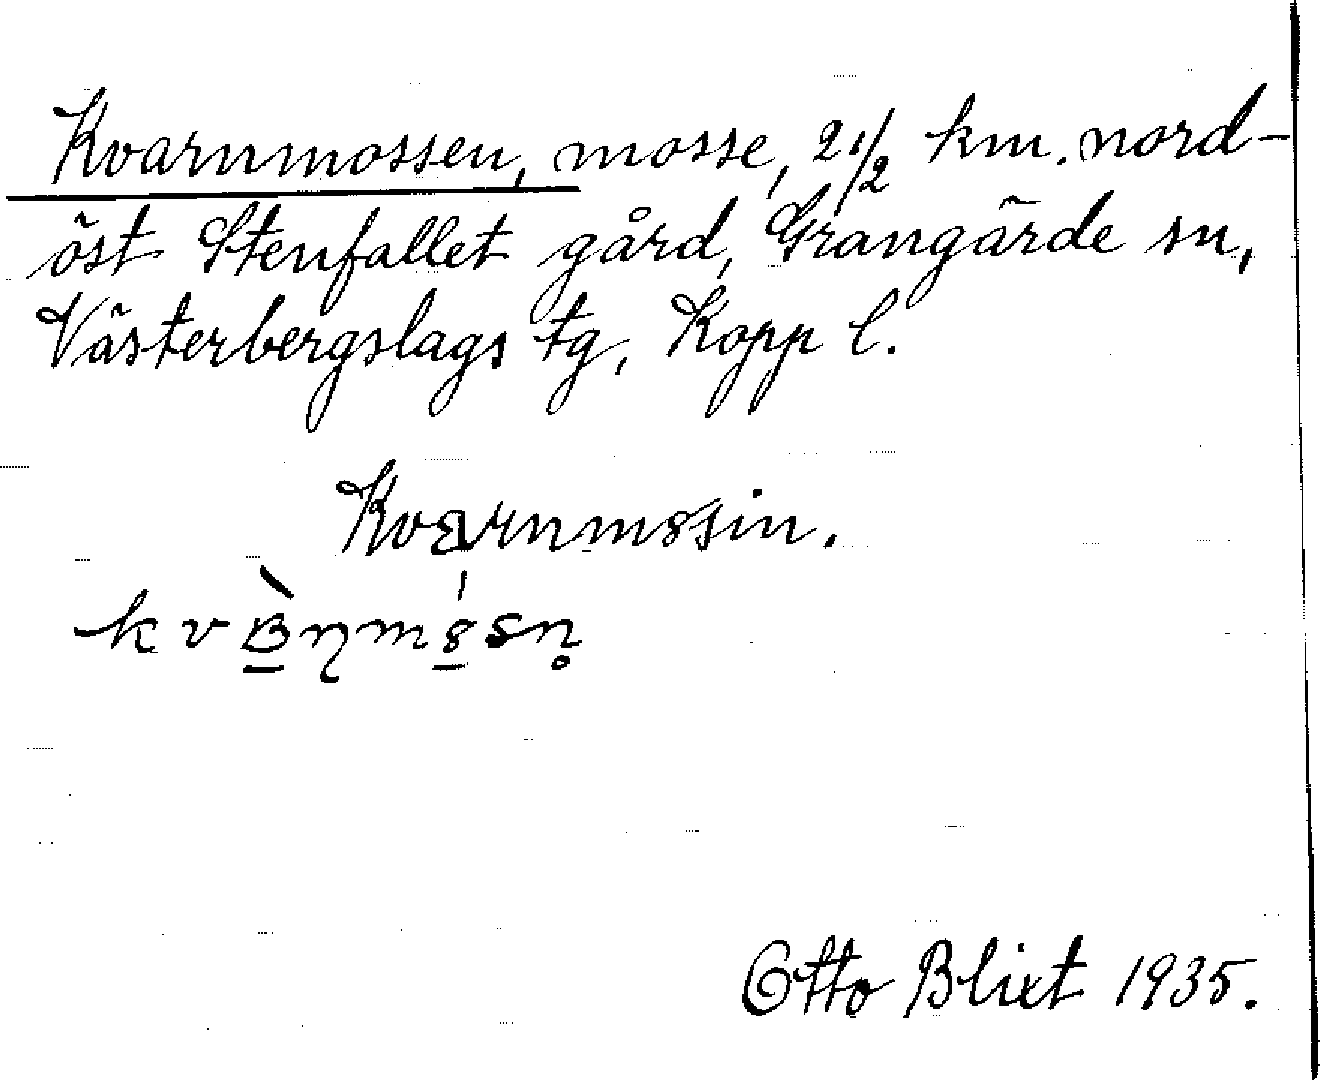 Kvarnmossen, mosse, 2 1/2 km. nord-
öst Stenfallet gård, Grangärde sn,
Västerbergslags tg, Kopp l.
Otto Blixt 1935.